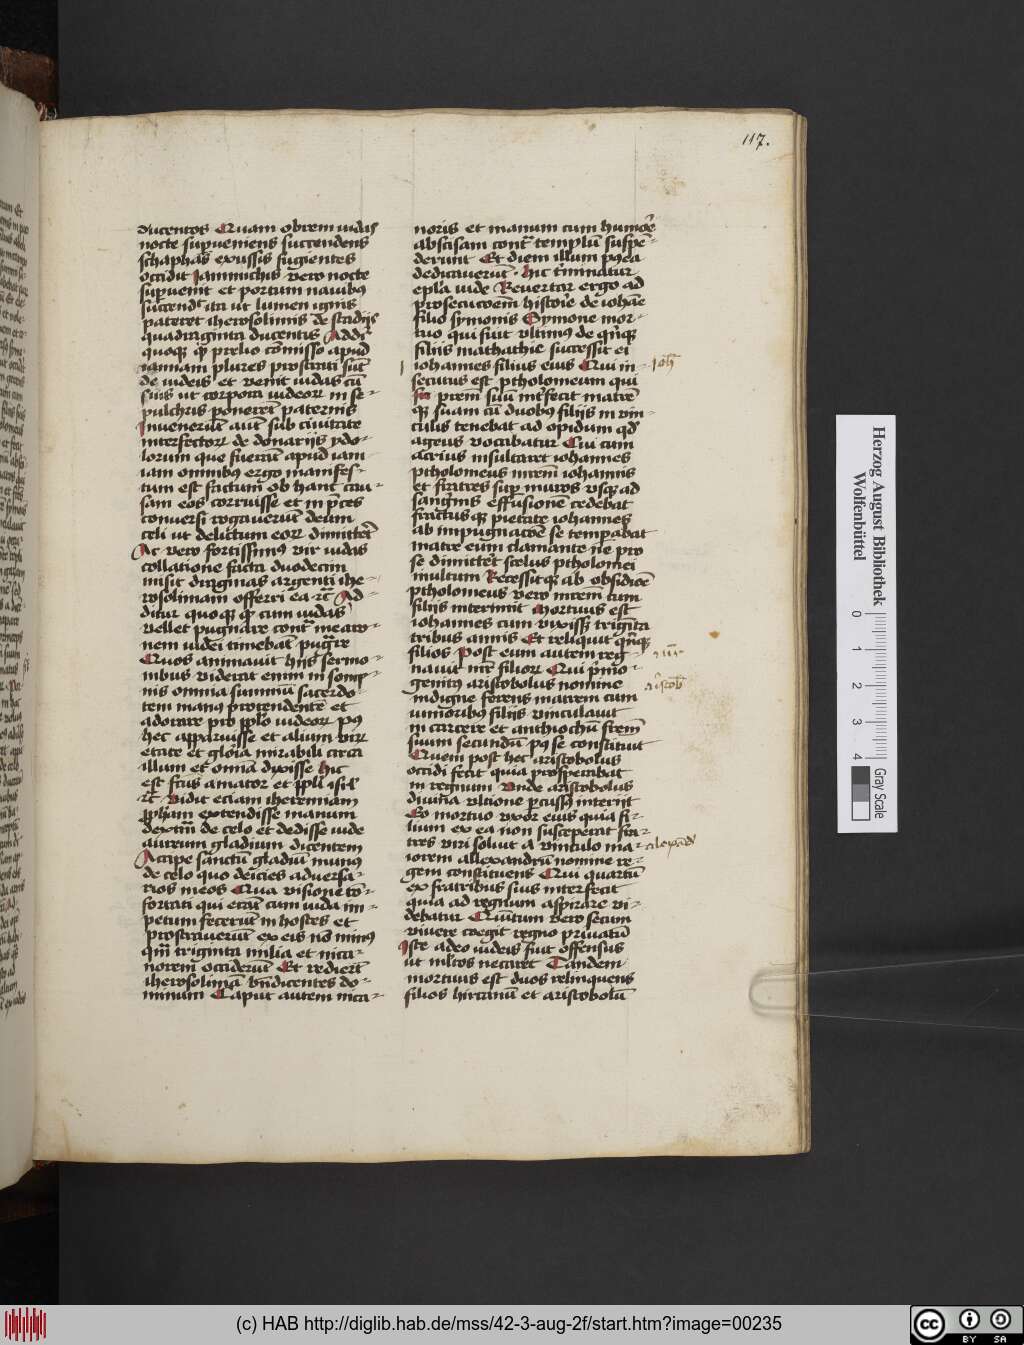 117.
ducentos Quam obrem iudas
nocte supveniens succendens
schaphas exussis fugientes
occidit Iamnuchis vero nocte
supvenit et portum navibus
succend ita ut lumen ignis
pateret iherosolimis de stadijs
quadraginta ducentis Addr
quoque qp prelio comisso apud
iamniam plures prostrati sut
de iudeis et venit iudas cu
suis ut corpora iudeor in se-
pulchris poneret paternis
Inveneru aut sub civitate
interfector de donarijs ydo-
lorum que fueru apud iam
iam omnibus ergo manifes-
tum est factum ob hanc cau-
sam eos corruisse et in pces
conversi rogaveru deum
celi ut delictum eor dimitter
Ac vero fortissimus vir iudas
collatione facta duodecim
misit dragmas argenti ihe-
rosolimam offerri ea rc Ad-
ditur quoque qp cum iudas
vellet pugnare cont meato-
nem iudei timebat pugre
Quos animavit hijs sermo-
nibus viderat enim in somp-
nis omnia summu sacerdo-
tem manus protendente et
adorare pro pplo iudeor pq
hec apparuisse et alium vir
etate et gloia mirabili circa
illum et onia dixisse hic
est frus amator et ppli isrl
rc vidit eciam iheremiam
pham extendisse manum
dextra de celo et dedisse iude
aureum gladium dicentem
Accipe sanctu gladiu munus
de celo quo deicies adversa-
rios meos Qua visione co-
fortati qui erat cum iuda im-
petum feceru in hostes et
prostraveru ex eis no minus
qm triginta milia et nica-
norem occideru Et rediert
iherosolima bndicentes do-
minum Caput autem nica-
noris et manum cum humoe
abscisam cont templu suspe-
derunt Et diem illum pqea
dedicaveru hic tminatur
epla iude Revertar ergo ad
prosecucoem historie de iohae
filio symonis Symone mor-
tuo qui fuit ultimus de qnque
filijs mathathie successit ei
iohannes filius eius Qui in-
secutus est ptholomeum qui
prem suu intfecit matre
qz suam cu duobus filijs in vin-
culis tenebat ad opidum qd
ageus vocabatur Cui cum
acrius insultaret iohannes
ptholomeus mrem iohannis
et fratres sup muros usque ad
sanginis effusione cedebat
fractusque pietate iohannes
ab impugnacoe se tempabat
matre eum clamante ne pro
se dimittet scelus ptholomei
inultum Recessitque ab obsidioe
ptholomeus vero mrem cum
filijs interimit Mortuus est
iohannes cum vixisset triginta
tribus annis Et reliquit qnque
filios Post eum autem reg-
navit nr filior Qui pmo-
genitus aristobolus nomine
indigne ferens matrem cum
iunioribus filijs vinculavit
in carcere et anthiochu frem
suum secundu pq se constituit
Quem post hec aristobolus
occidi fecit quia prosperabat
in regnum Unde aristobolus
divina ultione pcussus interijt
Eo mortuo uxor eius quia fi-
lium ex ea non susceperat fra-
tres viri soluit a vinculo ma-
iorem allexandru nomine re-
gem constituens Qui quartu
ex fratribus suis interfecit
quia ad regnum aspirare vi-
debatur Quintum vero secum
vivere coegit regno privatu
Iste adeo iudeis fuit offensus
ut mltos necaret Tandem
mortuus est duos relinquens
filios hircanu et aristobolu
Ioh
alexand
Herzog August Bibliothek
Wolfenbüttel
0 1 2 3 4
Gray Scale
(c) HAB http://diglib.hab.de/mss/42-3-aug-2f/start.htm?image=00235
cc BY SA